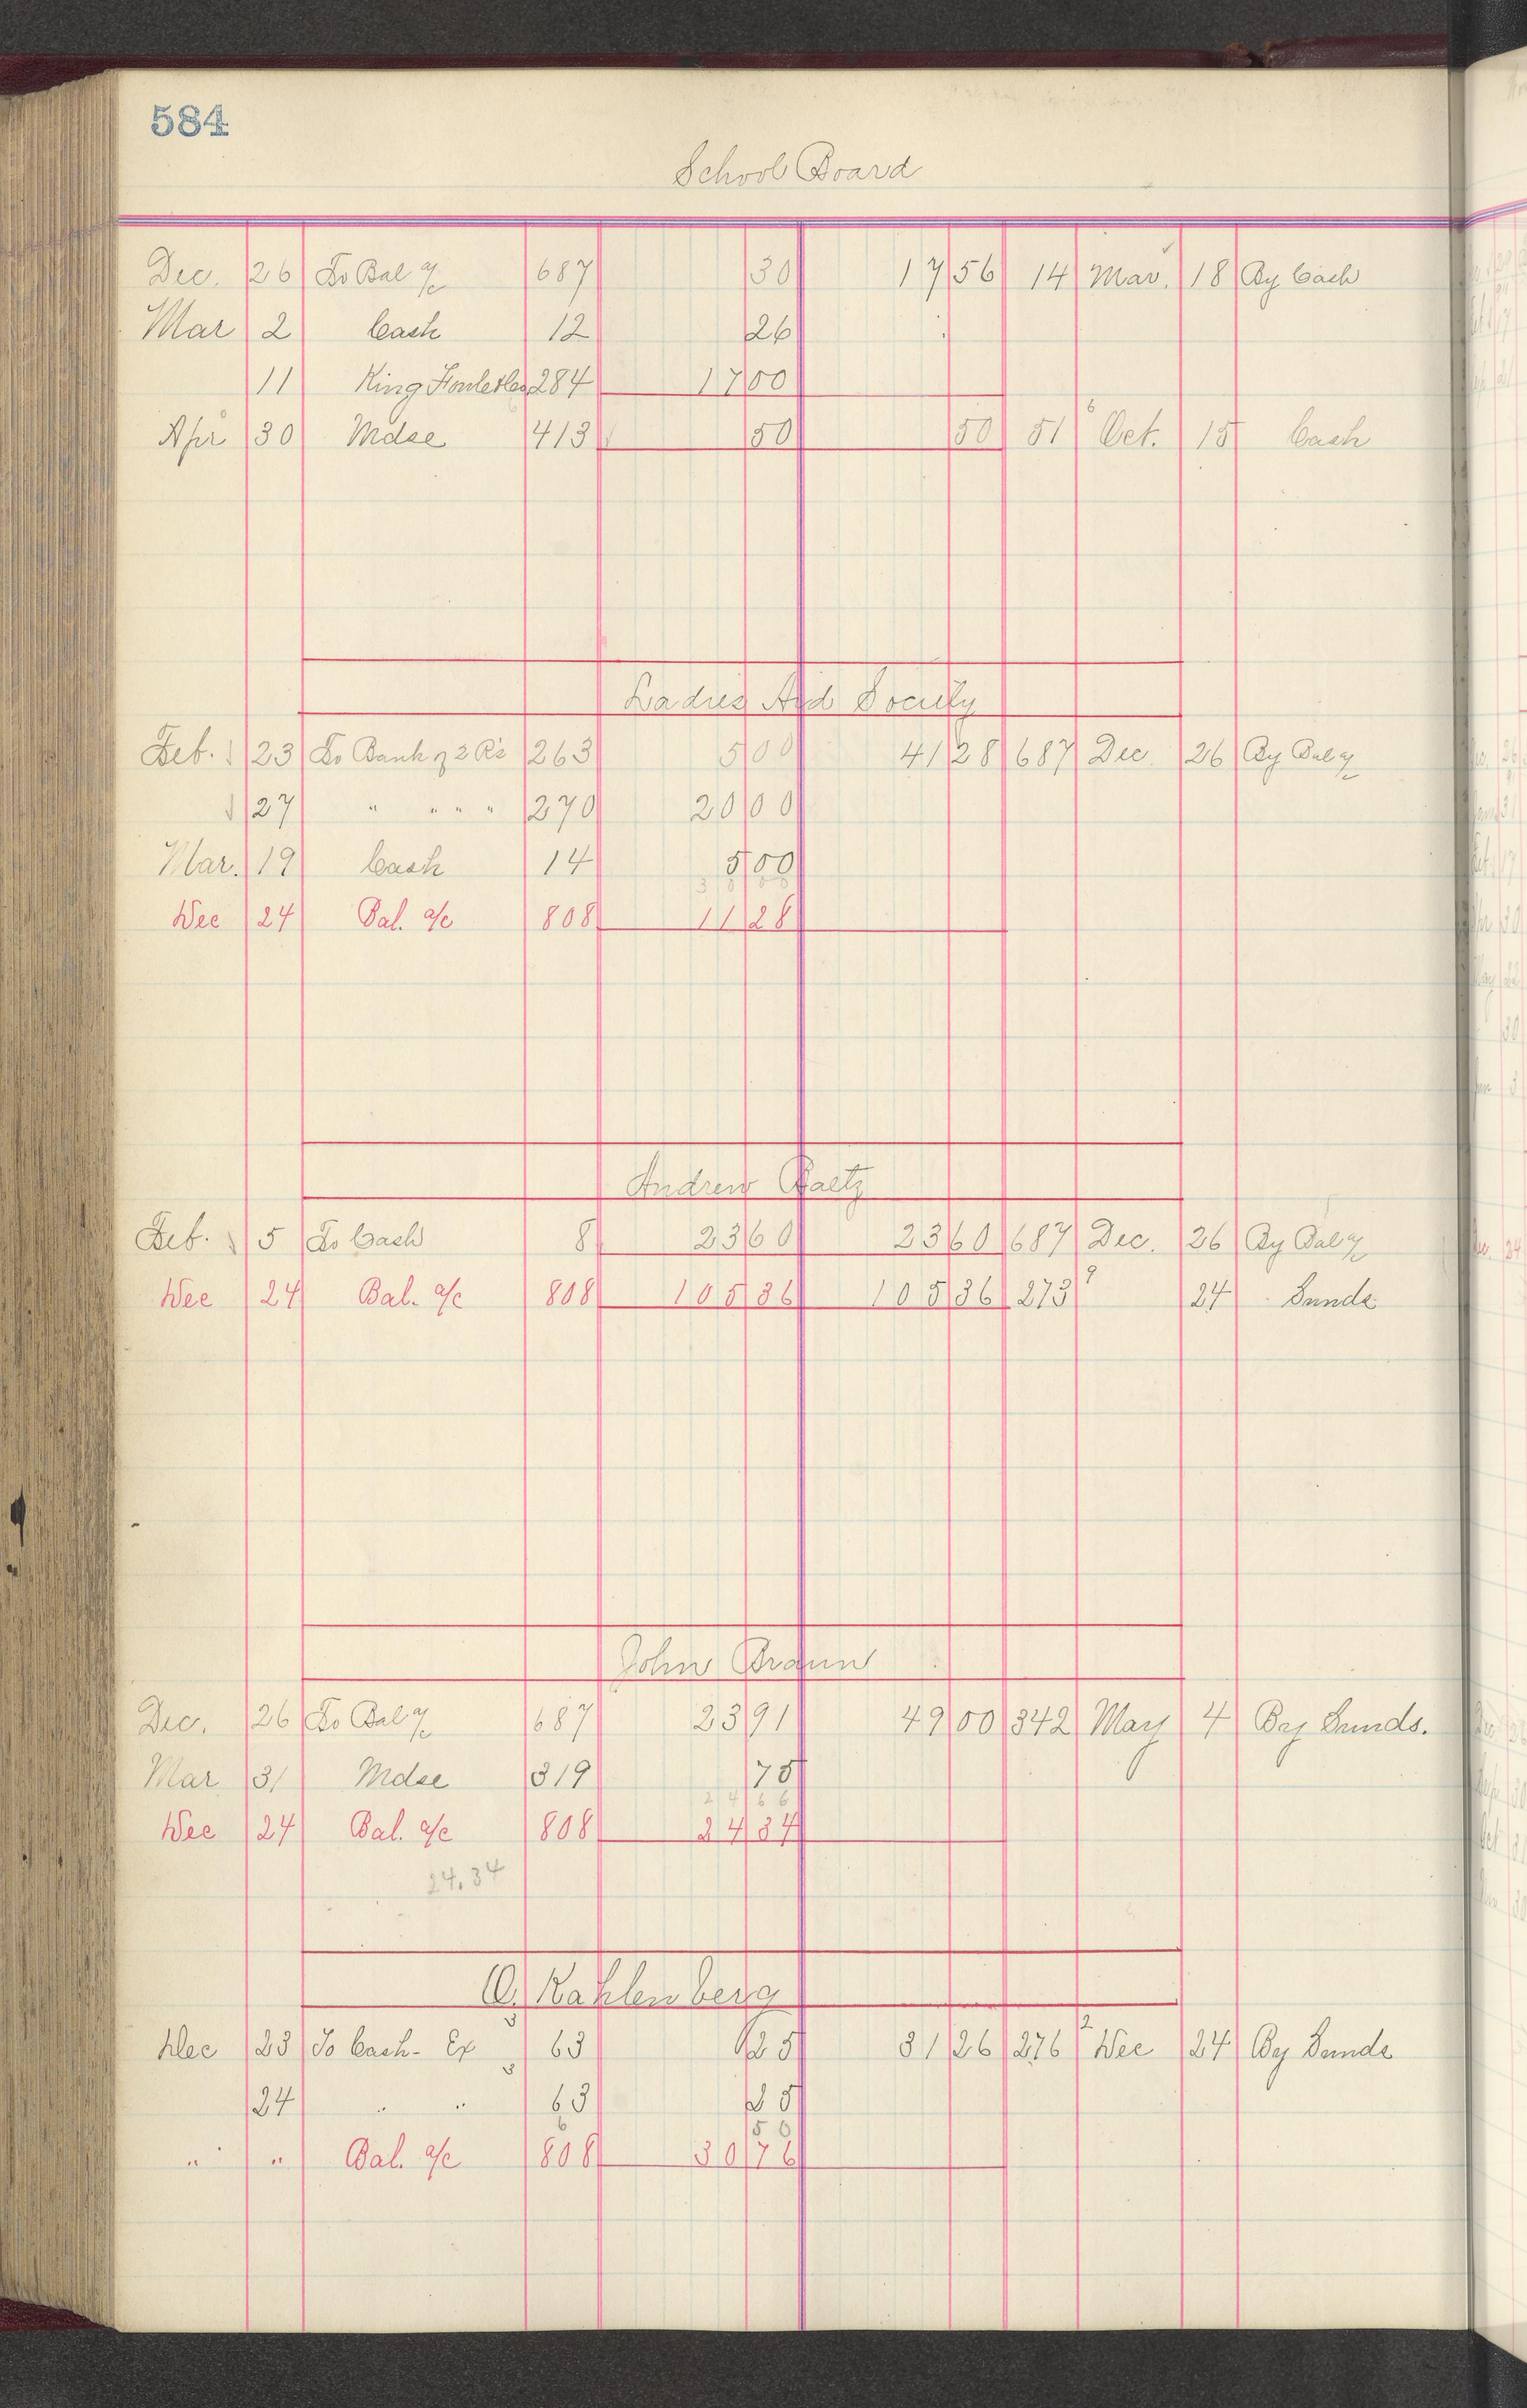 584
School Board
Dec. 26 To Bal a/c 687 30 17 56 14 Mar. 18 By Cash
Mar 2 Cash 12 26
11 King 284 17 00
Apr 30 Mdse 413 50 50 51 6 Oct. 15 Cash
Ladies Aid Society
Feb. 23 To Bank of 2 R's 263 5 00 41 28 687 Dec. 26 By Bal a/c
27 " " " " 270 20 00
Mar. 19 Cash 14 5 00
30 00
Dec 24 Bal. a/c 808 11 28
Andrew Baetz
Feb. 5 To Cash 8 23 60 23 60 687 Dec. 26 By Bal a/c
Dec 24 Bal. a/c 808 105 36 105 36 273 9 24 Sunds
John Braun
Dec. 26 To Bal a/c 687 23 91 49 00 342 May 4 By Sunds.
Mar 31 Mdse 319 75
24 66
Dec 24 Bal. a/c 808 24 34
24.34
O. Kahlenberg
Dec 23 To Cash - Ex 3 63 25 31 26 276 2 Dec 24 By Sunds
24 " " 3 63 25
6 50
" " Bal. a/c 808 30 76